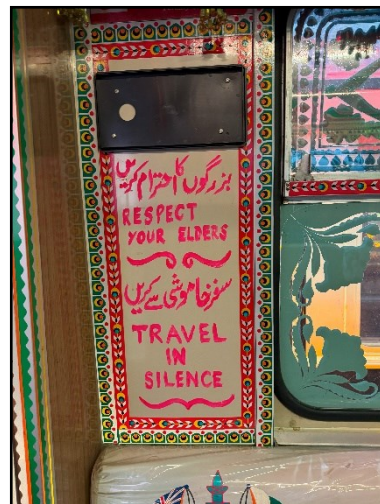 بزرگوں کا احترام کریں
RESPECT
YOUR ELDERS
سفر خاموشی سے کریں
TRAVEL
IN
SILENCE